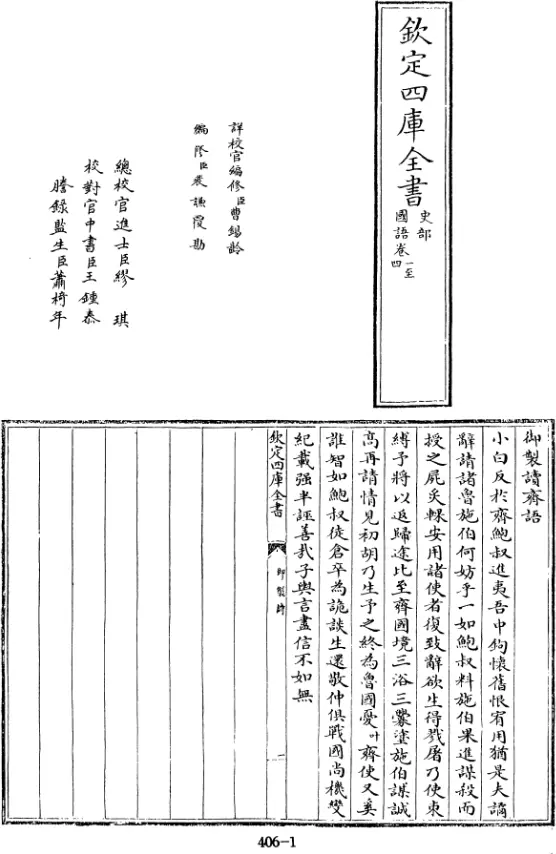 欽定四庫全書
史部
國語卷一至四
詳校官編修臣曹錫齡
編修臣裘謙覆勘
總校官進士臣繆琪
校對官中書臣王鍾泰
謄錄監生臣蕭椅年
御製讀齊語
小白反於齊鮑叔進夷吾中鉤懷舊恨宥用猶是夫譎
辭請諸魯施伯何妨乎一如鮑叔料施伯果進謀殺而
授之屍奚安用諸使者復致辭欲生得戮屠乃使束
縛予將以退歸途比至齊國境三浴三釁塗施伯謀誠
高再請情見初胡乃生予之終為魯國憂吁齊使又奚
誰智如鮑叔徒倉卒為詭談生還敬仲俱戰國尚機變
紀載强半誣善哉子輿言盡信不如無
欽定四庫全書
御製詩
一
406-1